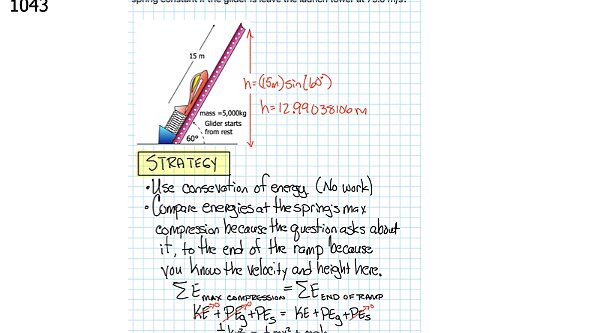 1043
spring constant if the glider is leave the launch tower at 75.0 m/s?
15 m
h=(15m)sin(60°)
h=12.99038106m
mass =5,000kg
Glider starts
from rest
60°
STRATEGY
• Use consevation of energy (No work)
• Compare energies at the spring's max
compression because the question asks about
it, to the end of the ramp because
you know the velocity and height here.
∑E MAX COMPRESSION = ∑E END OF RAMP
KE→0 + PEg→0 + PEs = KE + PEg + PEs→0